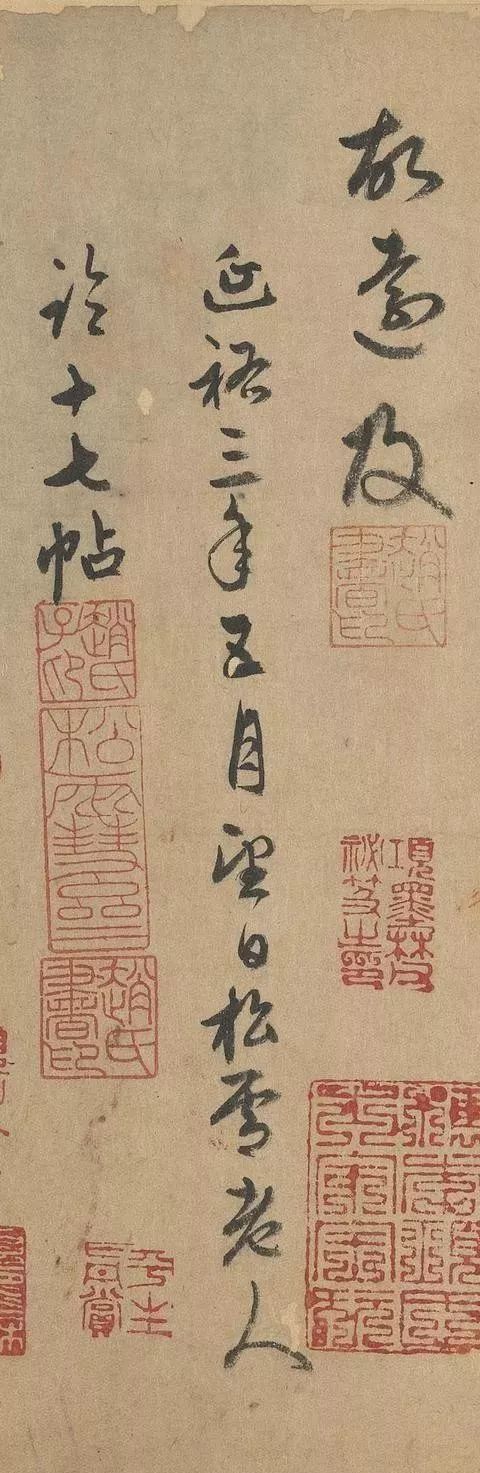 故遠及
趙氏書印
項墨林父祕笈之印
延祐三年五月望日松雪老人
臨十七帖
趙氏子昂
松雪齋
趙氏書印
平生真賞